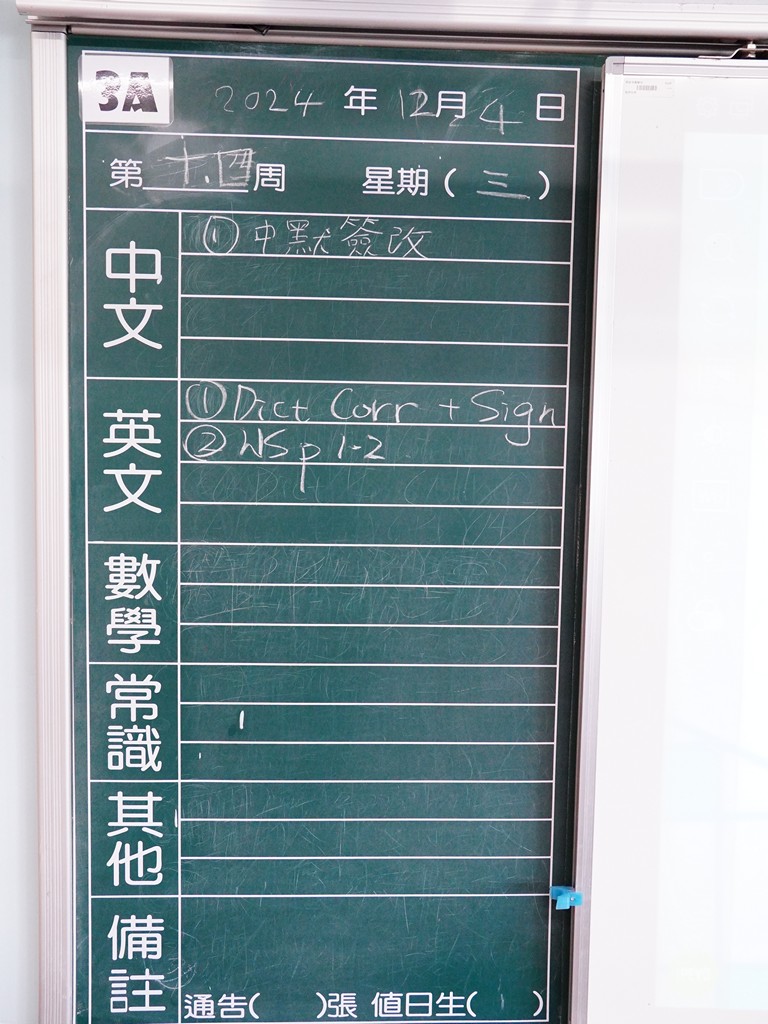 3A 2024 年 12月 4 日
第 十四 周 星期 ( 三 )
中文
① 中默簽改
英文
① Dict Corr + Sign
② WS p 1-2
數學
常識
其他
備註
通告( )張 值日生( )